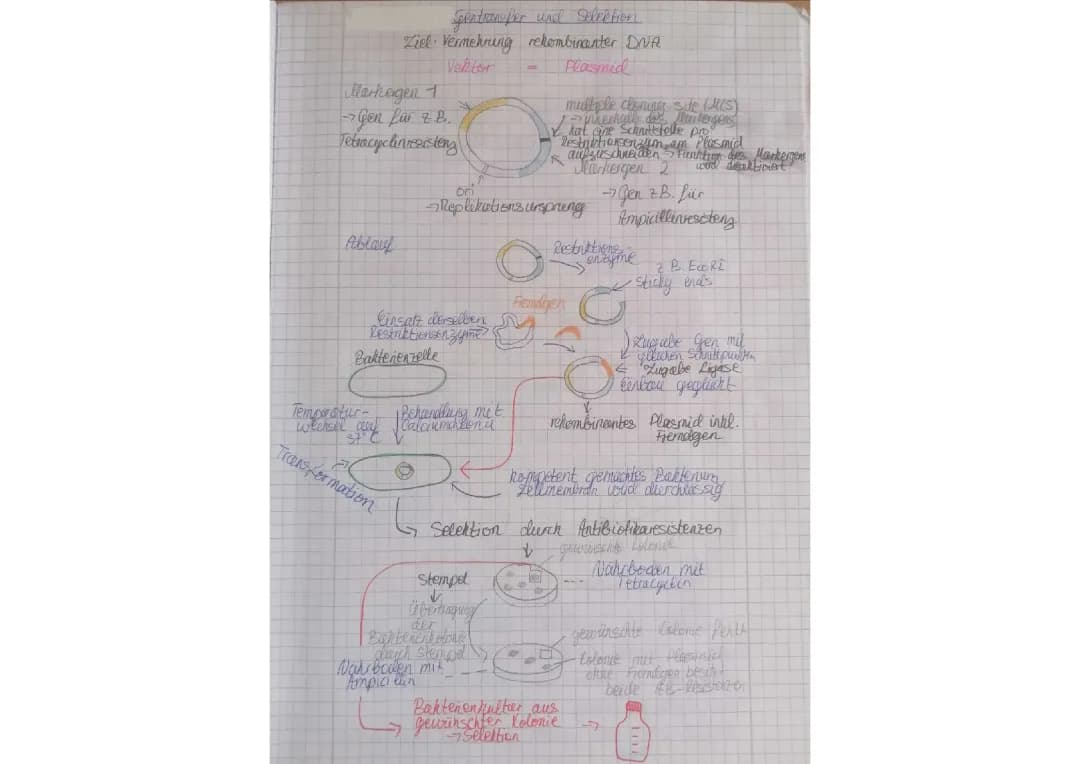 Gentransfer und Selektion
Ziel: Vermehrung rekombinanter DNA
Vektor = Plasmid
Markergen 1
→ Gen für z.B.
Tetracyclinresistenz
multiple cloning site (MCS)
→ innerhalb des Markergens
hat eine Schnittstelle pro
Restriktionsenzym, um Plasmid
aufzuschneiden → Funktion des Markergens
wird deaktiviert
Markergen 2
→ Gen z.B. für
Ampicillinresistenz
ori
→ Replikationsursprung
Ablauf
Restriktions-
enzyme
z.B. EcoRI
sticky ends
Fremdgen
Einsatz derselben
Restriktionsenzyme
Zugabe Gen mit
gleichen Schnittpunkten
Zugabe Ligase
Einbau geglückt
Bakterienzelle
rekombinantes Plasmid inkl.
Fremdgen
Temperatur-
wechsel auf
37°C
Behandlung mit
Calciumchlorid
Transformation
kompetent gemachtes Bakterium
Zellmembran wird durchlässig
Selektion durch Antibiotikaresistenzen
gewünschte Kolonie
Nährboden mit
Tetracyclin
Stempel
Übertragung
der
Bakterienkolonie
durch Stempel
Nährboden mit
Ampicillin
gewünschte Kolonie fehlt
Kolonie mit Plasmid
ohne Fremdgen besitzt
beide AB-Resistenzen
Bakterienkultur aus
gewünschter Kolonie
→ Selektion